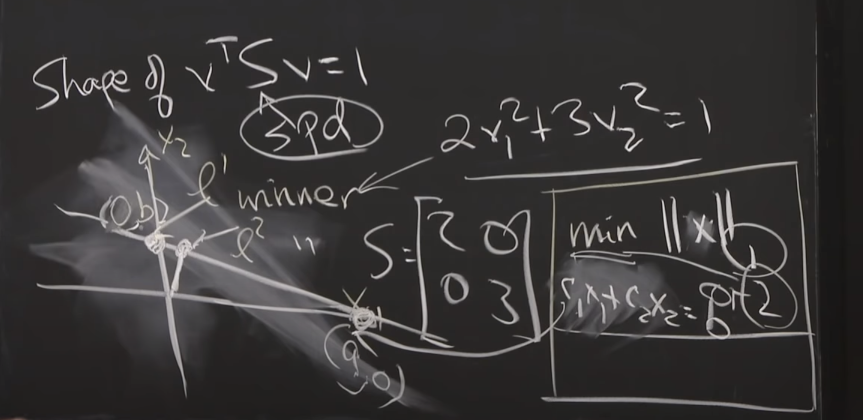 Shape of vᵀSv=1
spd
2v₁²+3v₂²=1
x₂
(0,b)
l¹ winner
l² "
S=[2 0
0 3]
min ||x||₁
or 2
c₁x₁+c₂x₂=g
(a,0)